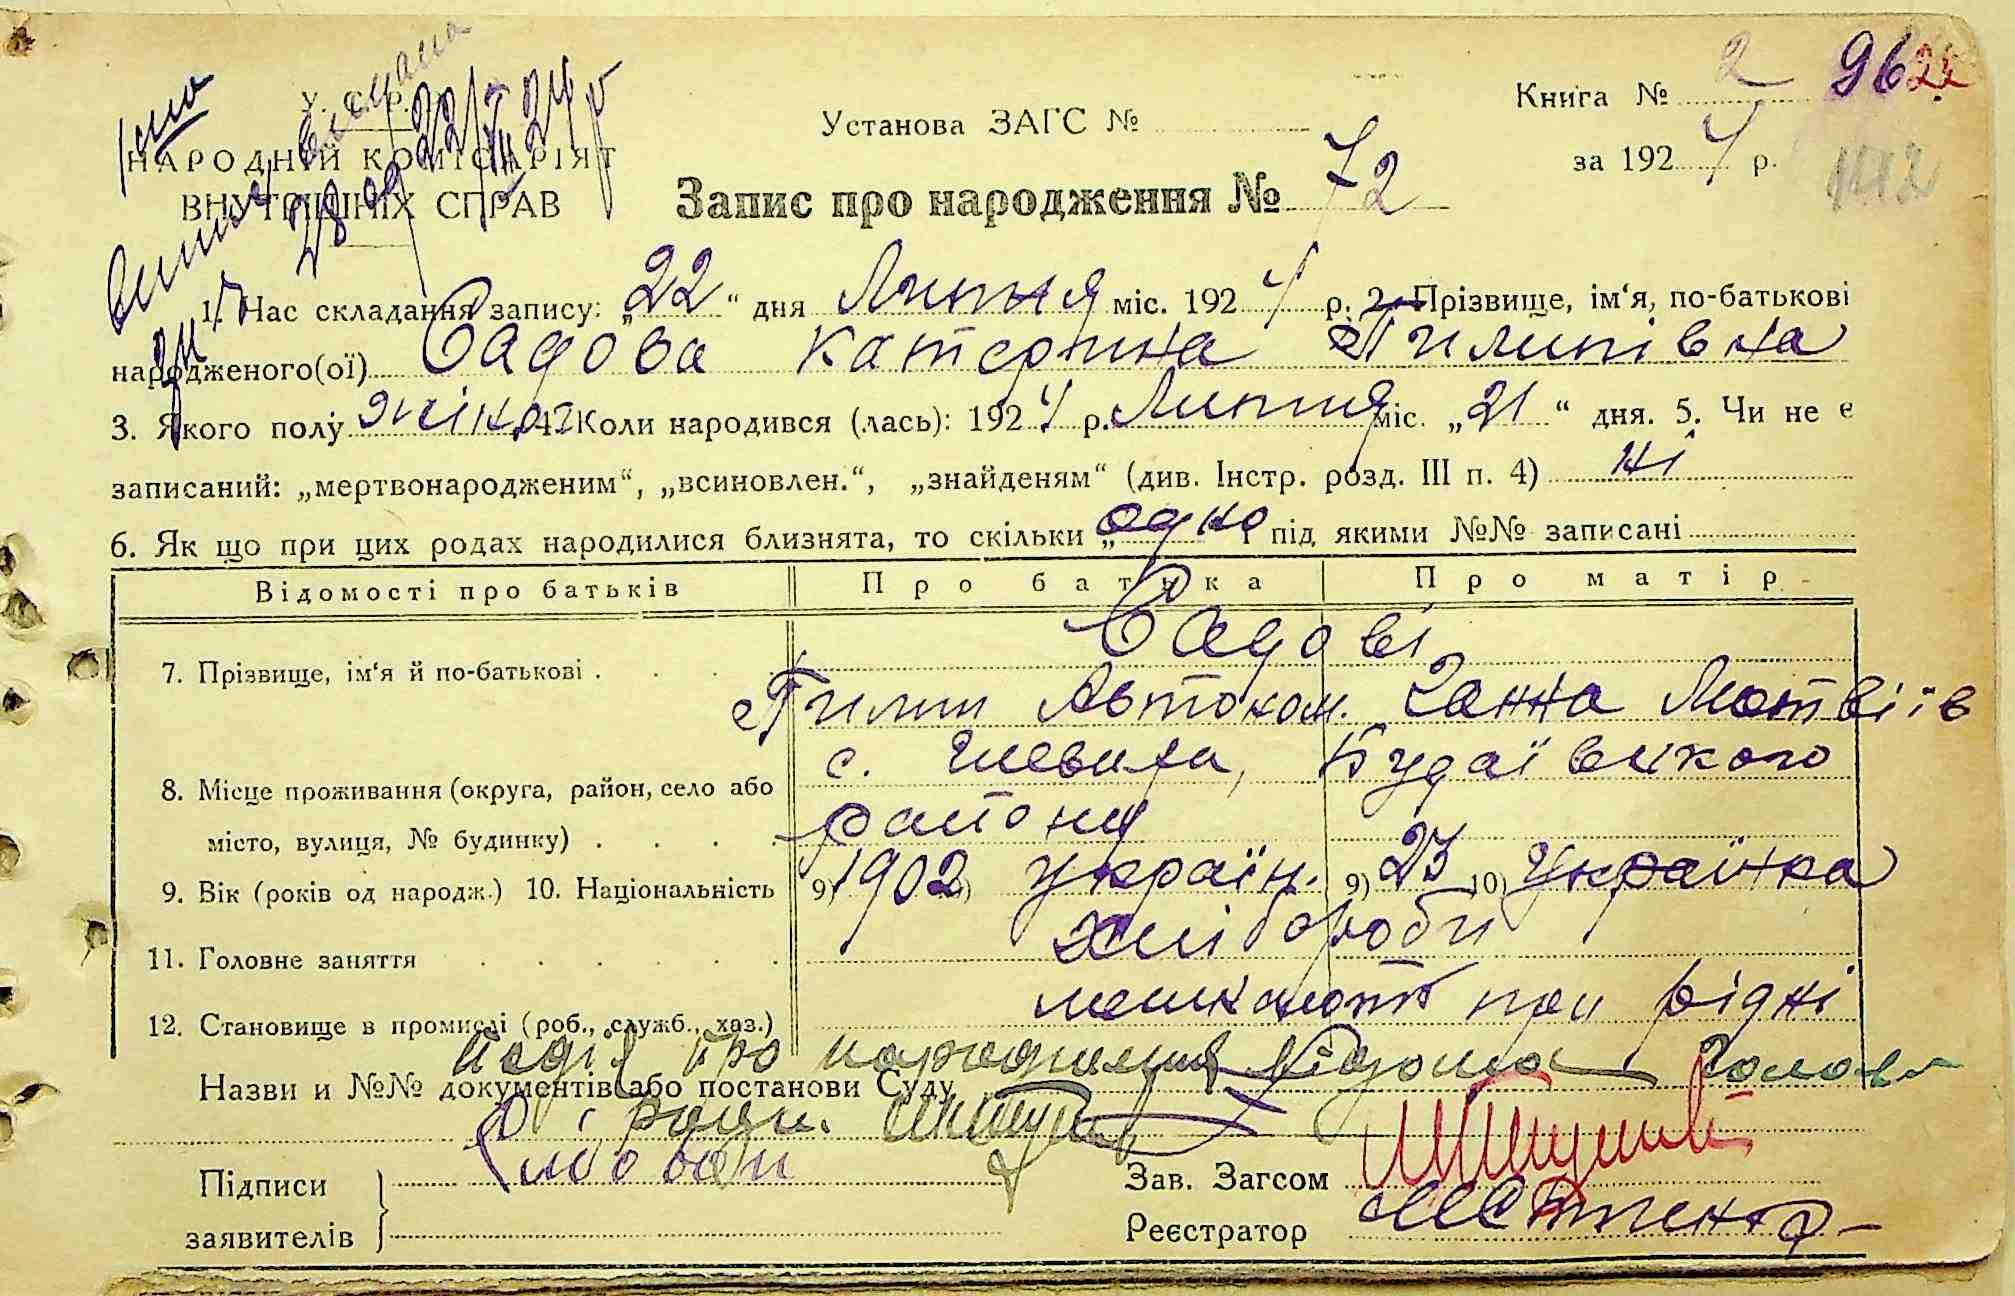 У. С. Р. Р.
НАРОДНІЙ КОМІСАРІЯТ
ВНУТРІШНІХ СПРАВ
Установа ЗАГС №
Книга № 2 96
за 1924 р.
Запис про народження № 72
1. Час складання запису: „22“ дня Липня міс. 1924 р. 2. Прізвище, ім‘я, по-батькові
народженого(ої) Садова Катерина Пилипівна
3. Якого полу жіноч. 4. Коли народився (лась): 1924 р. Липня міс. „21“ дня. 5. Чи не є
записаний: „мертвонародженим“, „всиновлен.“, „знайденям“ (див. Інстр. розд. III п. 4) ні
6. Як що при цих родах народилися близнята, то скільки „одно під якими №№ записані
Відомості про батьків Про батька Про матір
Садові
7. Прізвище, ім‘я й по-батькові
Пилип Автоном. Ганна Мотвіїв
с. Шевила, Будаївського
8. Місце проживання (округа, район, село або
місто, вулиця, № будинку) району
9. Вік (років од народж.) 10. Національність 9) 1902 10) Україн. 9) 23 10) Українка
11. Головне заняття хлібороби
12. Становище в промислі (роб., служб., хаз.) мешкають при рідні
Подія про народження відома Голова
Назви и №№ документів або постанови Суду
Підписи
заявителів
Зав. Загсом
Реєстратор